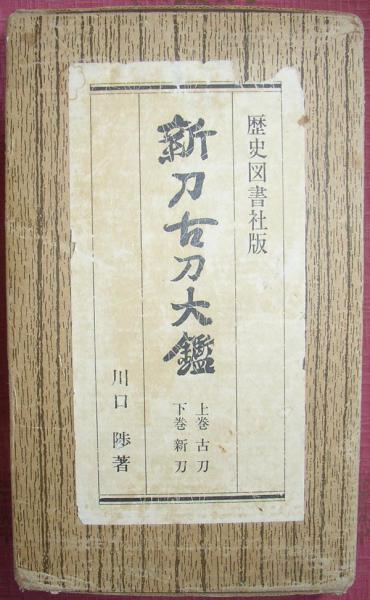 歴史図書社版
新刀古刀大鑑
上巻 古刀
下巻 新刀
川口 陟著